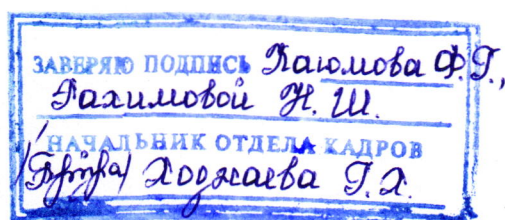 ЗАВЕРЯЮ ПОДПИСЬ Каюмова Ф.Г.,
Рахимовой Н. Ш.
НАЧАЛЬНИК ОТДЕЛА КАДРОВ
Ходжаева Г.Х.